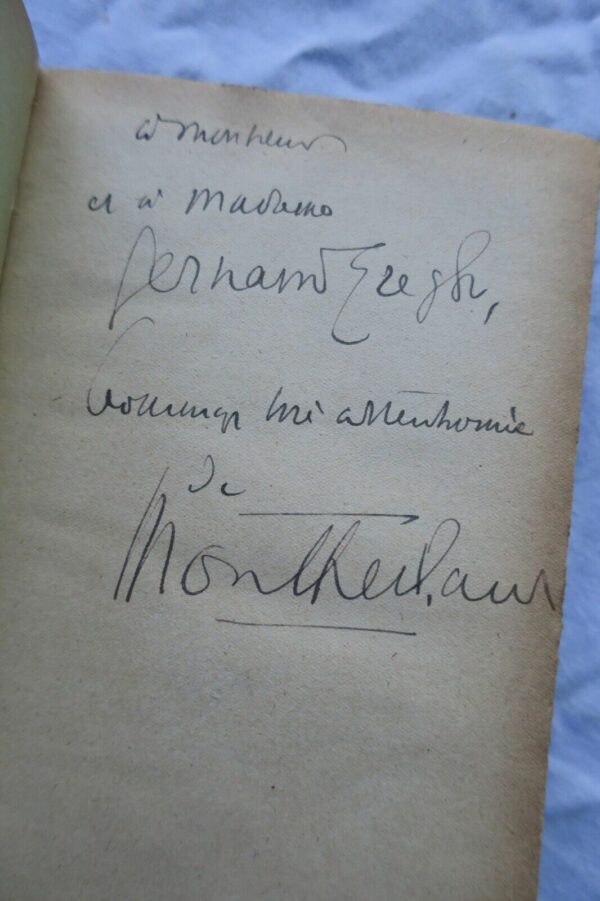 à Monsieur
et à Madame
Fernand Gregh,
hommage très attentionné
de
Montherlant